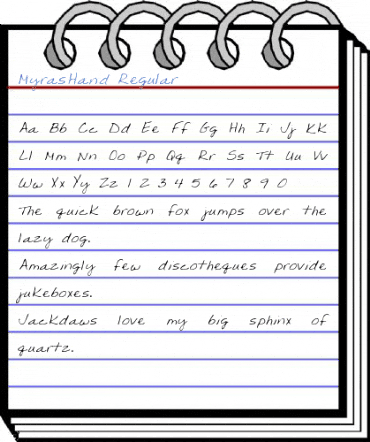 MyrasHand Regular
Aa Bb Cc Dd Ee Ff Gg Hh Ii Jj Kk
Ll Mm Nn Oo Pp Qq Rr Ss Tt Uu Vv
Ww Xx Yy Zz 1 2 3 4 5 6 7 8 9 0
The quick brown fox jumps over the
lazy dog.
Amazingly few discotheques provide
jukeboxes.
Jackdaws love my big sphinx of
quartz.